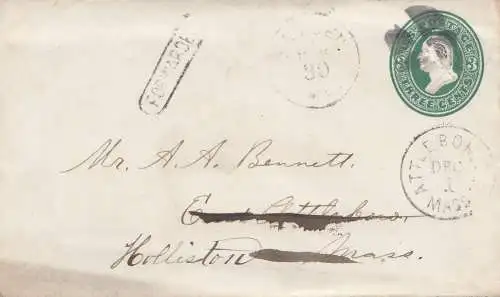 FORWARDED
30
U.S. POSTAGE
THREE CENTS
3
ATTLEBORO
DEC
1
MASS
Mr. A. A. Bennett.
East Attleboro.
Holliston Mass.